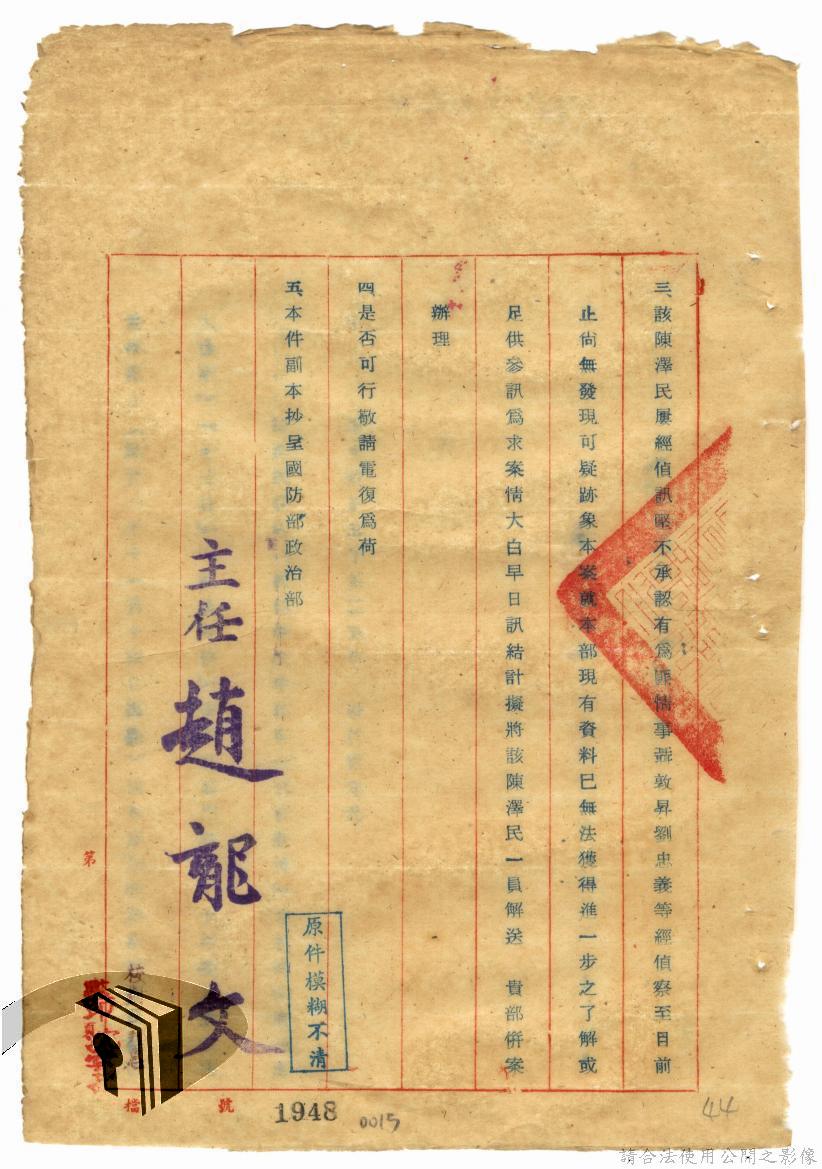 三、該陳澤民屢經偵訊堅不承認有為匪情事聶敦昇劉忠義等經偵察至目前
止尚無發現可疑跡象本案就本部現有資料已無法獲得進一步之了解或
足供參訊為求案情大白早日訊結計擬將該陳澤民一員解送　貴部併案
辦理
四是否可行敬請電復為荷
五、本件副本抄呈國防部政治部
主任 趙龍文
原件模糊不清
第
檔
號
1948
0015
44
請合法使用公開之影像